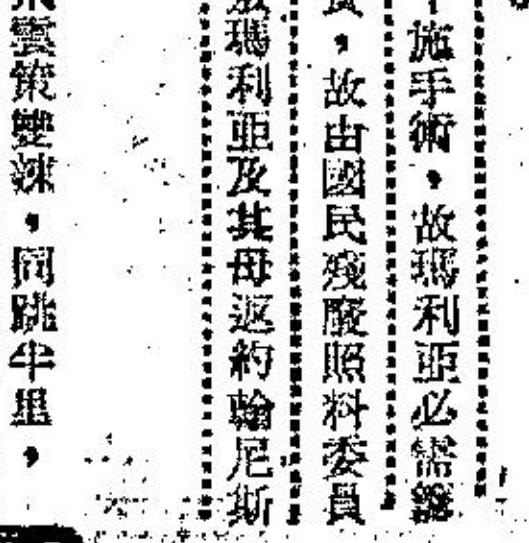 施手術，故瑪利亞必需
，故由國民殘廢照料委員
瑪利亞及其母返約翰尼斯
雲策雙，同跳半里，